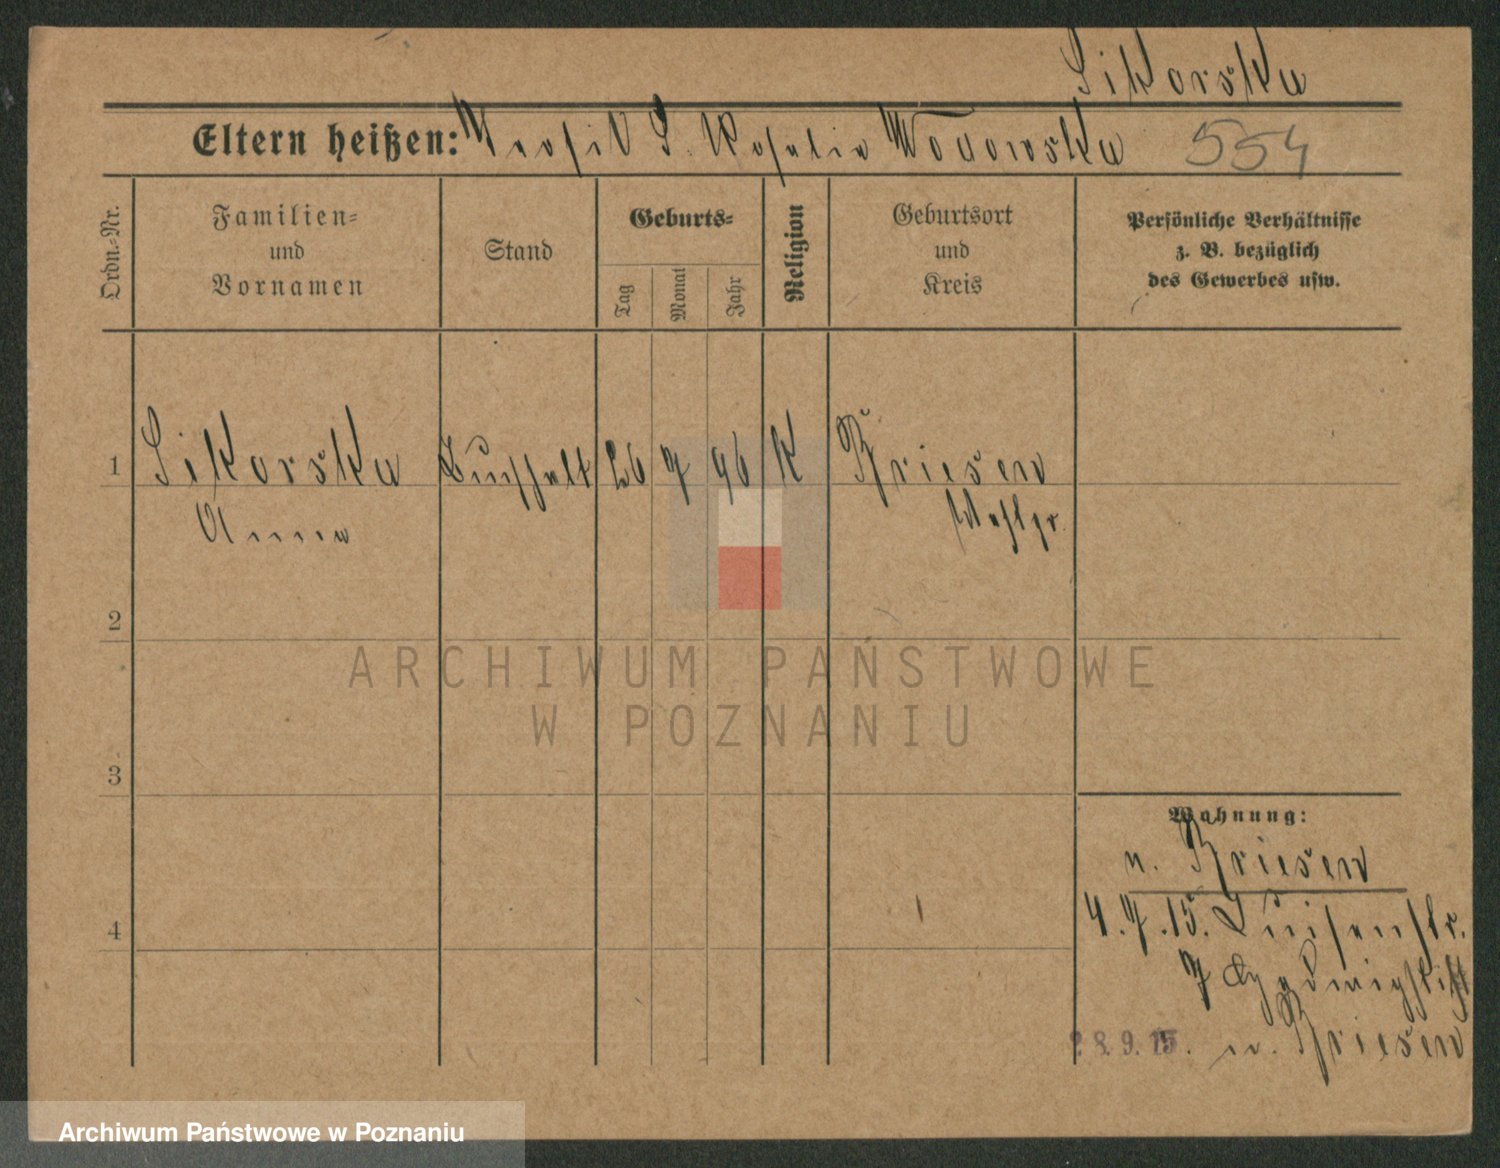 Sikorska
Eltern heißen: Teofil S. Rosalie 554
Ordn.-Nr.
Familien-
und
Vornamen
Stand
Geburts-
Tag
Monat
Jahr
Religion
Geburtsort
und
Kreis
Persönliche Verhältnisse
z. B. bezüglich
des Gewerbes usw.
1 Sikorska Buchhalt 26 7 96 K Briesen
Anna Wstpr.
2
ARCHIWUM PAŃSTWOWE
W POZNANIU
3
Wohnung:
n. Briesen
4 4.7.15. Luisenstr.
7 Hedwigstift
28.9.15. n. Briesen
Archiwum Państwowe w Poznaniu